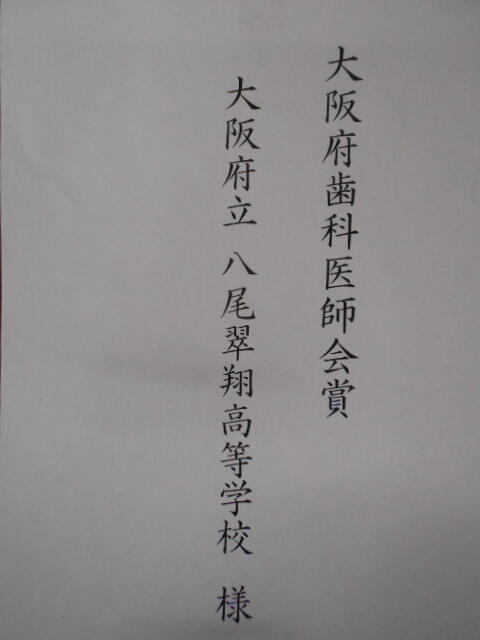 大阪府歯科医師会賞
大阪府立 八尾翠翔高等学校 様